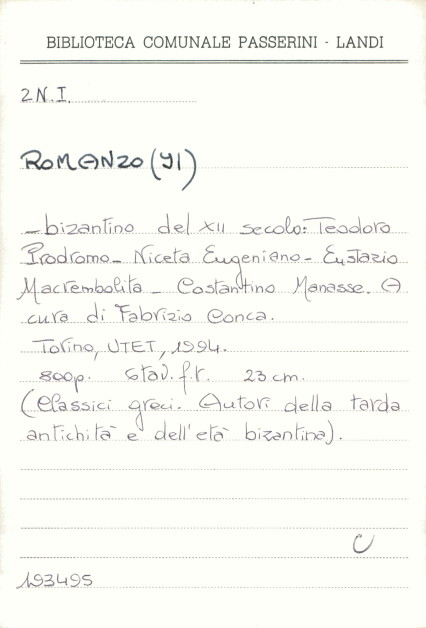 BIBLIOTECA COMUNALE PASSERINI - LANDI
2 N.I.
ROMANZO (Il)
_bizantino del XII secolo: Teodoro
Prodromo_ Niceta Eugeniano_ Eustazio
Macrembolita_ Costantino Manasse. A
cura di Fabrizio Conca.
Torino, UTET, 1994.
800p. 6tav.f.t. 23 cm.
(Classici greci. Autori della tarda
antichità e dell'età bizantina).
C
193495